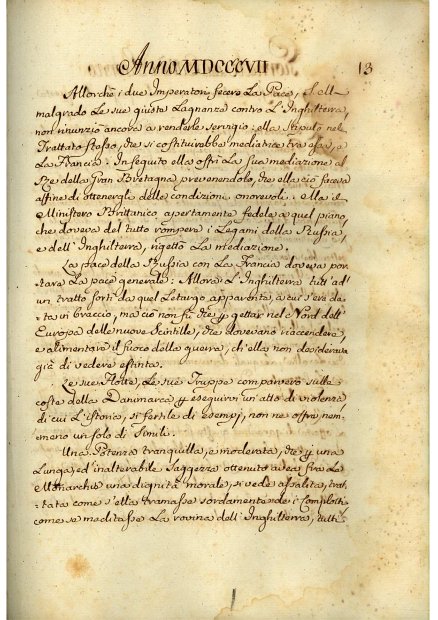 Anno MDCCCVII
13
Allorchè i due Imperatori fecero La Pace, S. M.
malgrado Le sue giuste Lagnanze contro L'Inghilterra,
non rinunziò ancora a renderle servigio: ella stipulò nel
Trattato stesso, che si costituirebbe mediatrice tra essa, e
La Francia. In seguito ella offrì La sua mediazione al
Re della Gran Bretagna, prevenendolo, che ella ciò faceva
affine di ottenergli delle condizioni onorevoli. Ma il
Ministero Brittanico apertamente fedele a quel piano,
che doveva del tutto rompere i Legami della Russia,
e dell'Inghilterra, rigettò La mediazione.
La pace della Russia con La Francia doveva por-
tare La pace generale: Allora L'Inghilterra tutt'ad'
un tratto sortì da quel Letargo apparente, a cui s'era da-
ta in braccio, ma ciò non fu che p gettar nel Nord dell'
Europa delle nuove Scintille, che dovevano riaccendere,
e alimentare il fuoco della guerra, ch'ella non desiderava
già di vedere estinta.
Le sue Flotte, Le sue Truppe comparvero sulle
coste della Danimarca p eseguirvi un'atto di violenza
di cui L'istoria, sì fertile di esempj, non ne offre nem-
meno un solo di simili.
Una Potenza tranquilla, e moderata, che p una
Lunga, ed inalterabile Saggezza ottenuto avea fra Le
Monarchie una dignità morale, si vede assalita, trat-
tata come s'ella tramasse sordamente dei Complotti
come se meditasse La rovina dell'Inghilterra, tutto